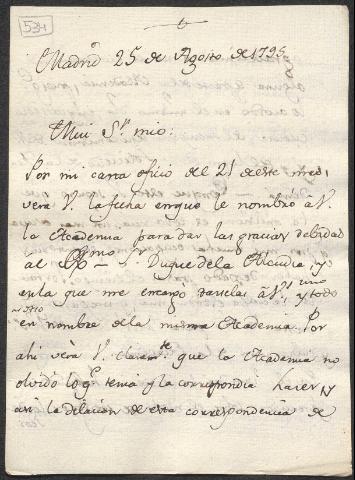 534
Madrid 25 de Agosto de 1795
Mui Sr. mio:
Por mi carta oficio del 21 de este mes
verá V. la fecha en que le nombró á V.
la Academia para dar las gracias debidas
al Exmo Sr. Duque de la Alcudia, y
en la que me encargó darselas á V. uno y otro
en nombre de la misma Academia. Por
ahi verá V. claramte. que la Academia no
olvidó lo q. tenia y la correspondia hacer, y
asi la dilacion de esta correspondencia de